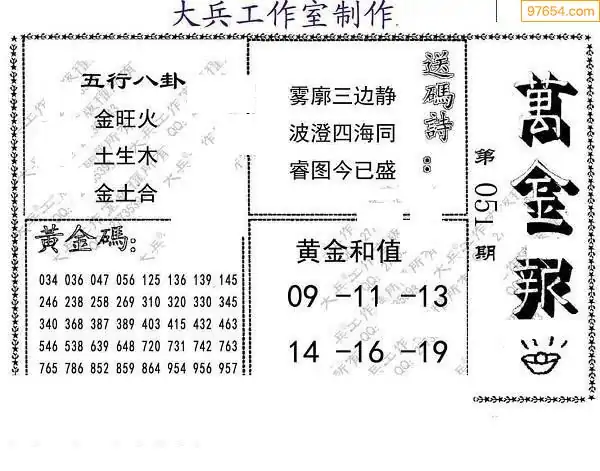 大兵工作室制作
97654.com
五行八卦
金旺火
土生木
金土合
送碼詩：
雾廓三边静
波澄四海同
睿图今已盛
萬金报
第051期
黃金碼：
034 036 047 056 125 136 139 145
246 238 258 269 310 320 330 345
340 368 387 389 403 415 432 463
546 538 639 648 720 731 742 763
765 786 852 859 864 954 956 957
黄金和值
09 -11 -13
14 -16 -19